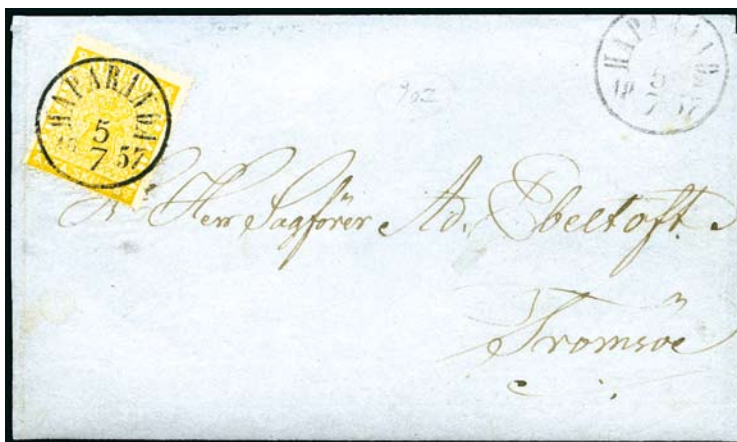 HAPARANDA
5
18 7 57
HAPARAND
5
18 7 57
902
Herr Sagförer Ad. Ebeltoft.
Tromsöe